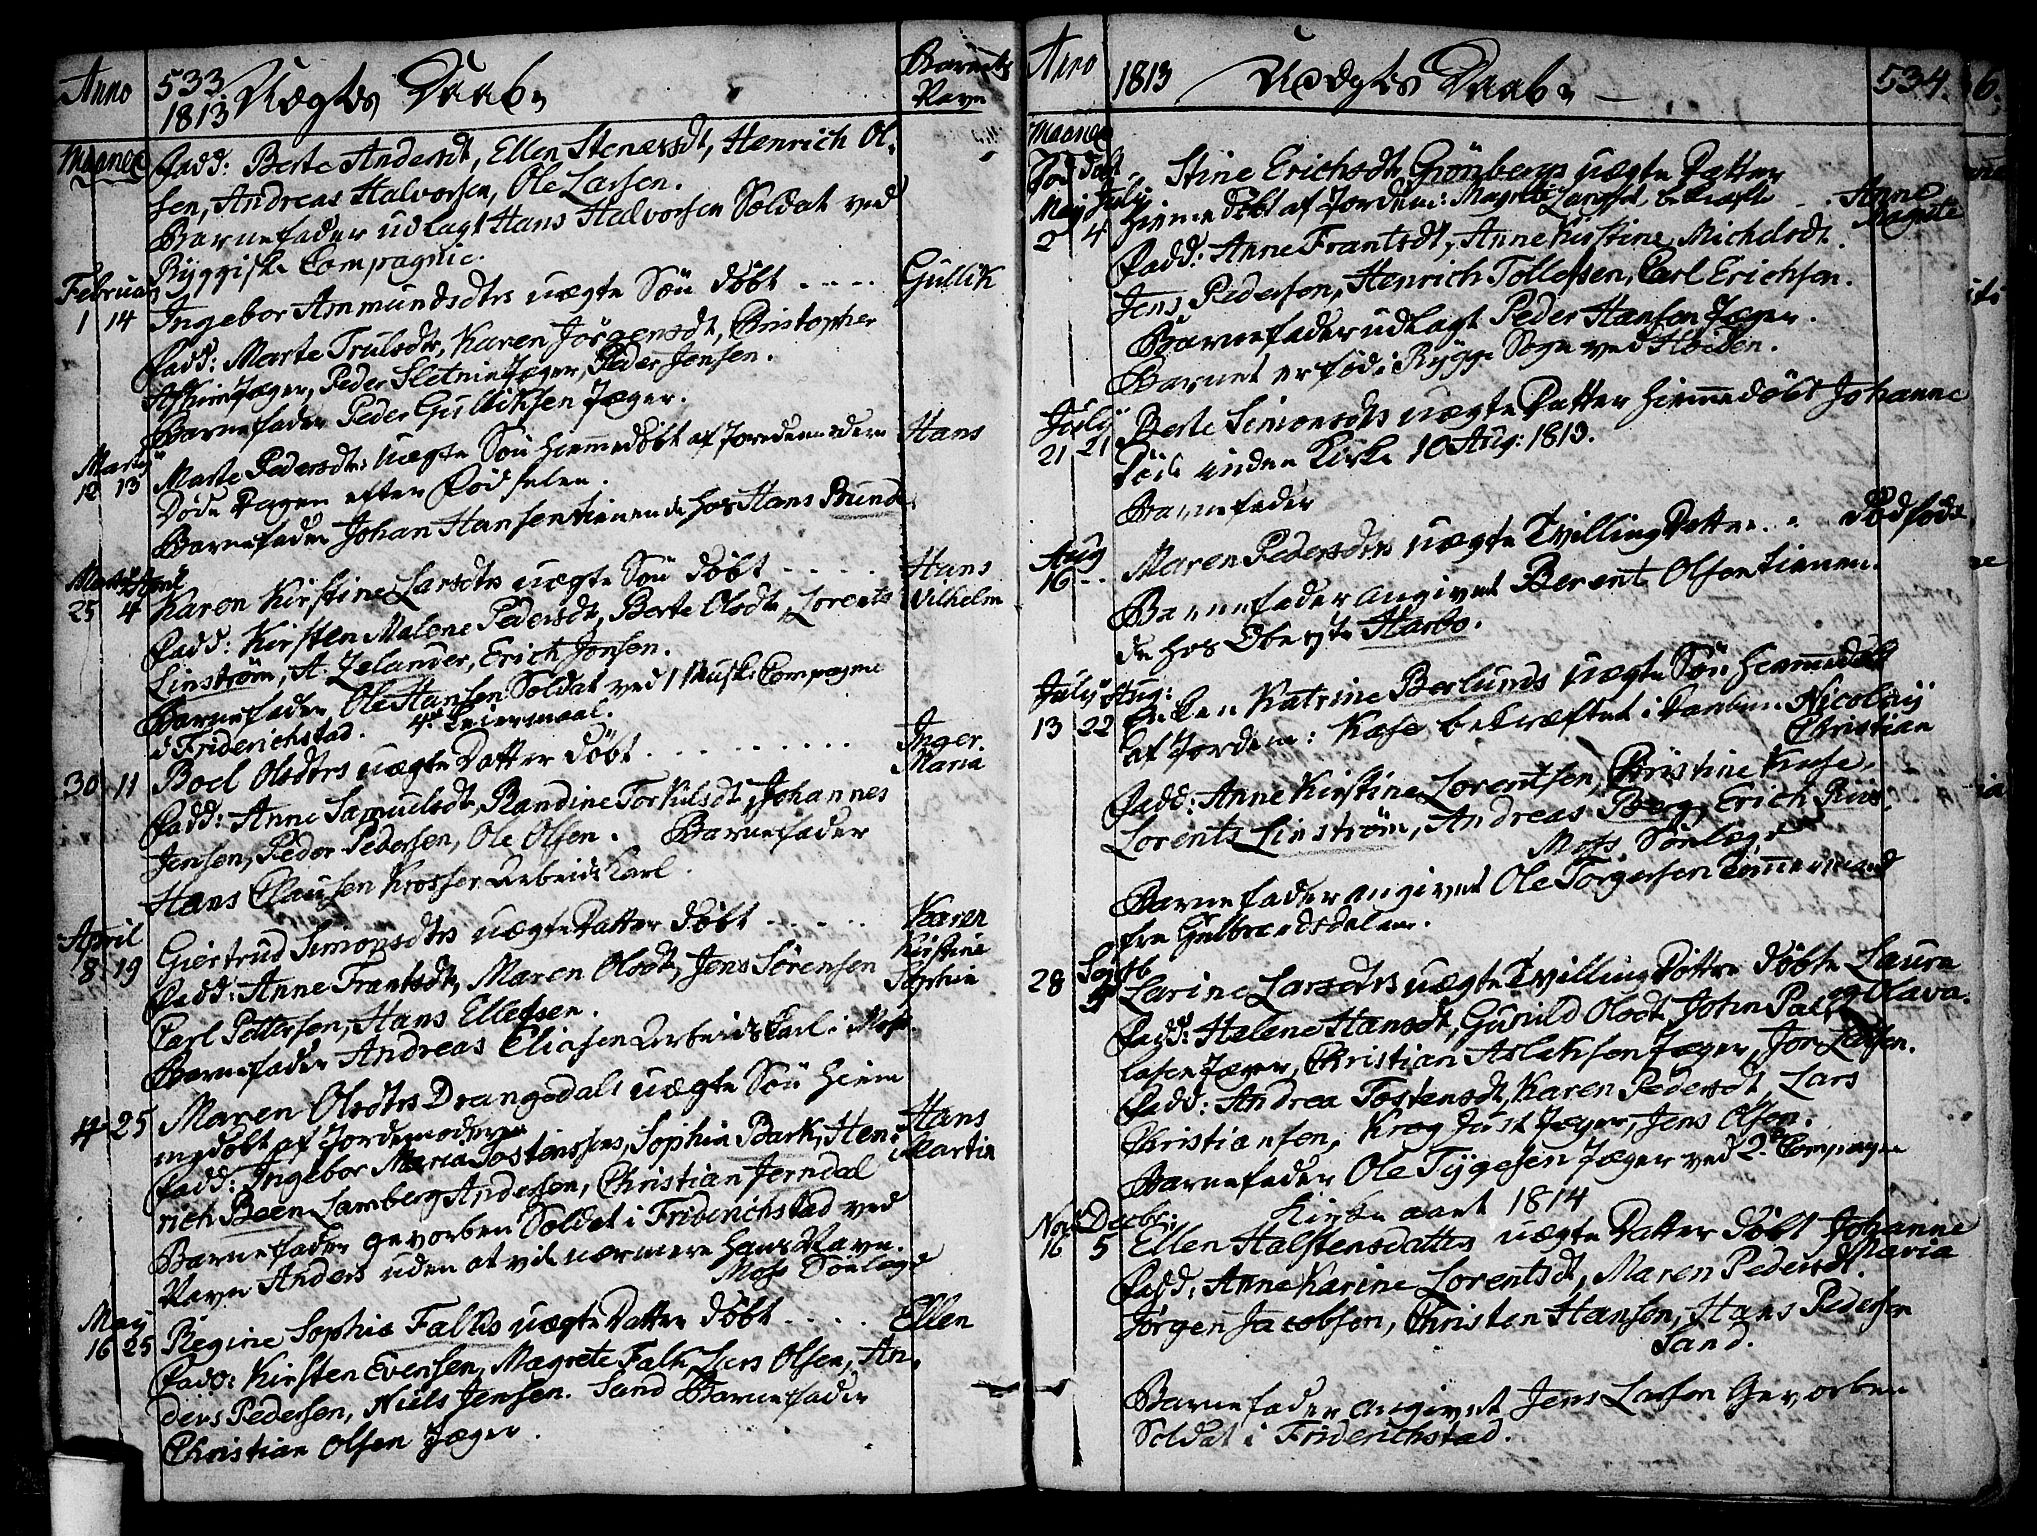 Anno 533. 1813 Uægtes Daab. Barnets Navn
Maanet Fadd: Berte Andersdt, Ellen Stenersdt, Henrich Ol-
sen, Andreas Halvorsen, Ole Larsen.
Barnefader udlagt Hans Halvorsen Soldat ved
Ryggiske Compagnie.
Februar 1 14 Ingebor Ammundsdtrs uægte Søn døbt - - - - Gullik
Fadd: Marte Trulsdtr, Karen Jörgensdt, Christopher
Askim Jæger, Peder Sletnie Jæger, Peder Jensen.
Barnefader Peder Gulliksen Jæger.
Martij 12 13 Marte Pedersdtrs uægte Søn hiemmedøbt af Jordemoderen Hans
Døde Dagen efter Fødselen.
Barnefader Johan Hansen tienende hos Hans Bunde
Martij April 25 4 Karen Kirstine Larsdtrs uægte Søn døbt - - - - - Hans Wilhelm
Fadd: Kirsten Malene Pedersdt, Berte Olsdt, Lorents
Linström, A. Zelander, Erich Jensen.
Barnefader Ole Hansen Soldat ved 1 Musk: Compagnie
i Friderichstad. 4de Leiermaal.
30 11 Boel Olsdtrs uægte Datter døbt . . . . . . . . . Inger Maria
Fadd: Anne Samuelsdt, Randine Torkilsdt, Johannes
Jensen, Peder Pedersen, Ole Olsen. Barnefader
Hans Clausen Krosser Arbeidskarl.
April 8 19 Giertrud Simonsdtrs uægte Datter døbt - - - - - Karen Kirstine Sophia
Fadd: Anne Frantsdt, Maren Olsdt, Jens Sörensen
Carl Pettersen, Hans Ellefsen.
Barnefader Andreas Eliasen Arbeidskarl i Moss.
4 25 Maren Olsdtrs Drangedals uægte Søn hiem Hans Martin
medøbt af Jordemoderen
Fadd: Ingebor Maria Tostensens, Sophia Bark, Hen-
rich Been, Lamberg Andersen, Christian Jerndal
Barnefader gevorben Soldat i Friderichstad ved
Navn Anders uden at vide nærmere hans Navn.
Moss Sønlage
May 16 25 Regine Sophia Falks uægte Datter døbt - - - - Ellen
Fadd: Kirsten Evensen, Magrete Falk, Lars Olsen, An-
ders Pedersen, Niels Jensen. Sand Barnefader
Christian Olsen Jæger.
Anno 1813 Uægtes Daab. 534.
Maanet
Fød døbt Stine Erichsdt, Grönbergs uægte Datter
May July 2 4 hiemmedøbt af Jordem: Magrete Larsdt bekræfte - - Anne Magrete
Fadd: Anne Frantsdt, Anne Kirstine Michelsdt.
Jens Pedersen, Henrich Tollefsen, Carl Erichsen.
Barnefader udlagt Peder Hansen Jæger.
Barnet er fød i Rygge Sogn ved Høiden.
July 21 21 Berte Simonsdtrs uægte Datter hiemmedøbt Johanne
Døde inden Kirke 10 Aug: 1813.
Barnefader
Aug 16 - - Maren Pedersdtrs uægte Tvilling Datter - - Dødfødt
Barnefader angivet Berent Olsen tienen-
de hos Oberste Harbo.
July Aug: 13 22 Katrine Berlunds uægte Søn hiemmedøbt Nicolaij Christian
af Jordem: Kase bekræftet i Kirken
Fadd: Anne Kirstine Lorentsen, Christine Kase,
Lorents Linström, Andreas Berg, Erich Riis.
Moss Sønlage
Barnefader angivet Ole Torgersen Tömmermand
fra Gulbrandsdalen.
28 Septb 9 Larine Larsdtrs uægte Tvilling Dottre døbte Laura og Olava.
Fadd: Helene Hansdt, Gunild Olsdt, John Pal
lasen Jæger, Christian Aslaksen Jæger, Jon Larsen.
Fadd: Andrea Tostensdt, Karen Pedersdt, Lars
Christiansen, Krog Just Jæger, Jens Olsen.
Barnefader Ole Tygesen Jæger ved 2de Compagnie
Kirke aaret 1814
Nov Decbr: 16 5 Ellen Halstensdatters uægte Datter døbt Johanne Maria
Fadd: Anne Karine Lorentsdt, Maren Pedersdt.
Jörgen Jacobsen, Christen Hansen, Hans Pedersen
Sand.
Barnefader angivet Jens Larsen Gevorben
Soldat i Friderichstad.